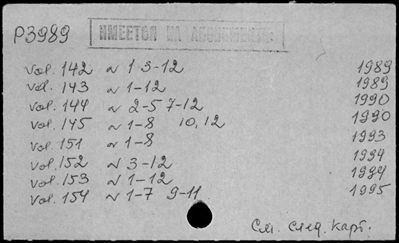 P3989
ИМЕЕТСЯ НА
vol. 142 N 1 3-12 1989
vol. 143 N 1-12 1989
vol. 144 N 2-5 7-12 1990
vol. 145 N 1-8 10, 12 1990
vol. 151 N 1-8 1993
vol. 152 N 3-12 1994
vol. 153 N 1-12 1994
vol. 154 N 1-7 9-11 1995
См. след. карт.